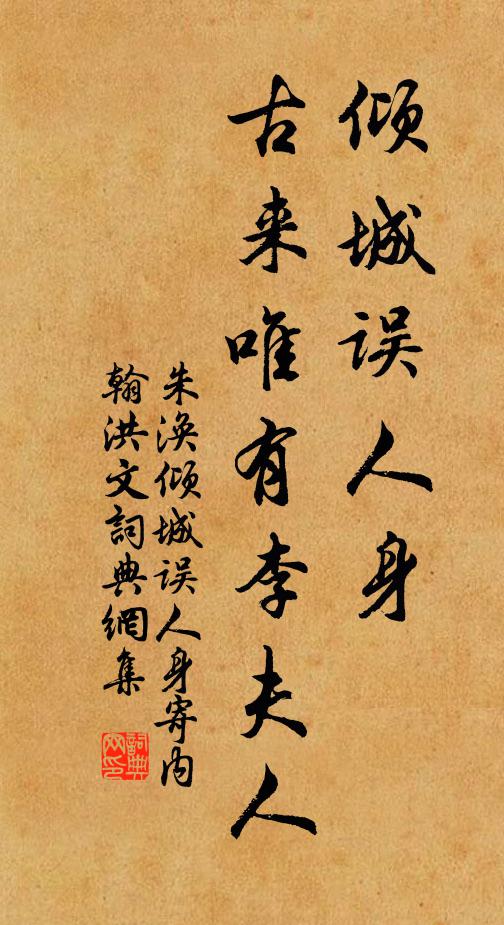 倾城误人身
古来唯有李夫人
朱涣倾城误人身寄内
翰洪文詞典網集
詞典网印